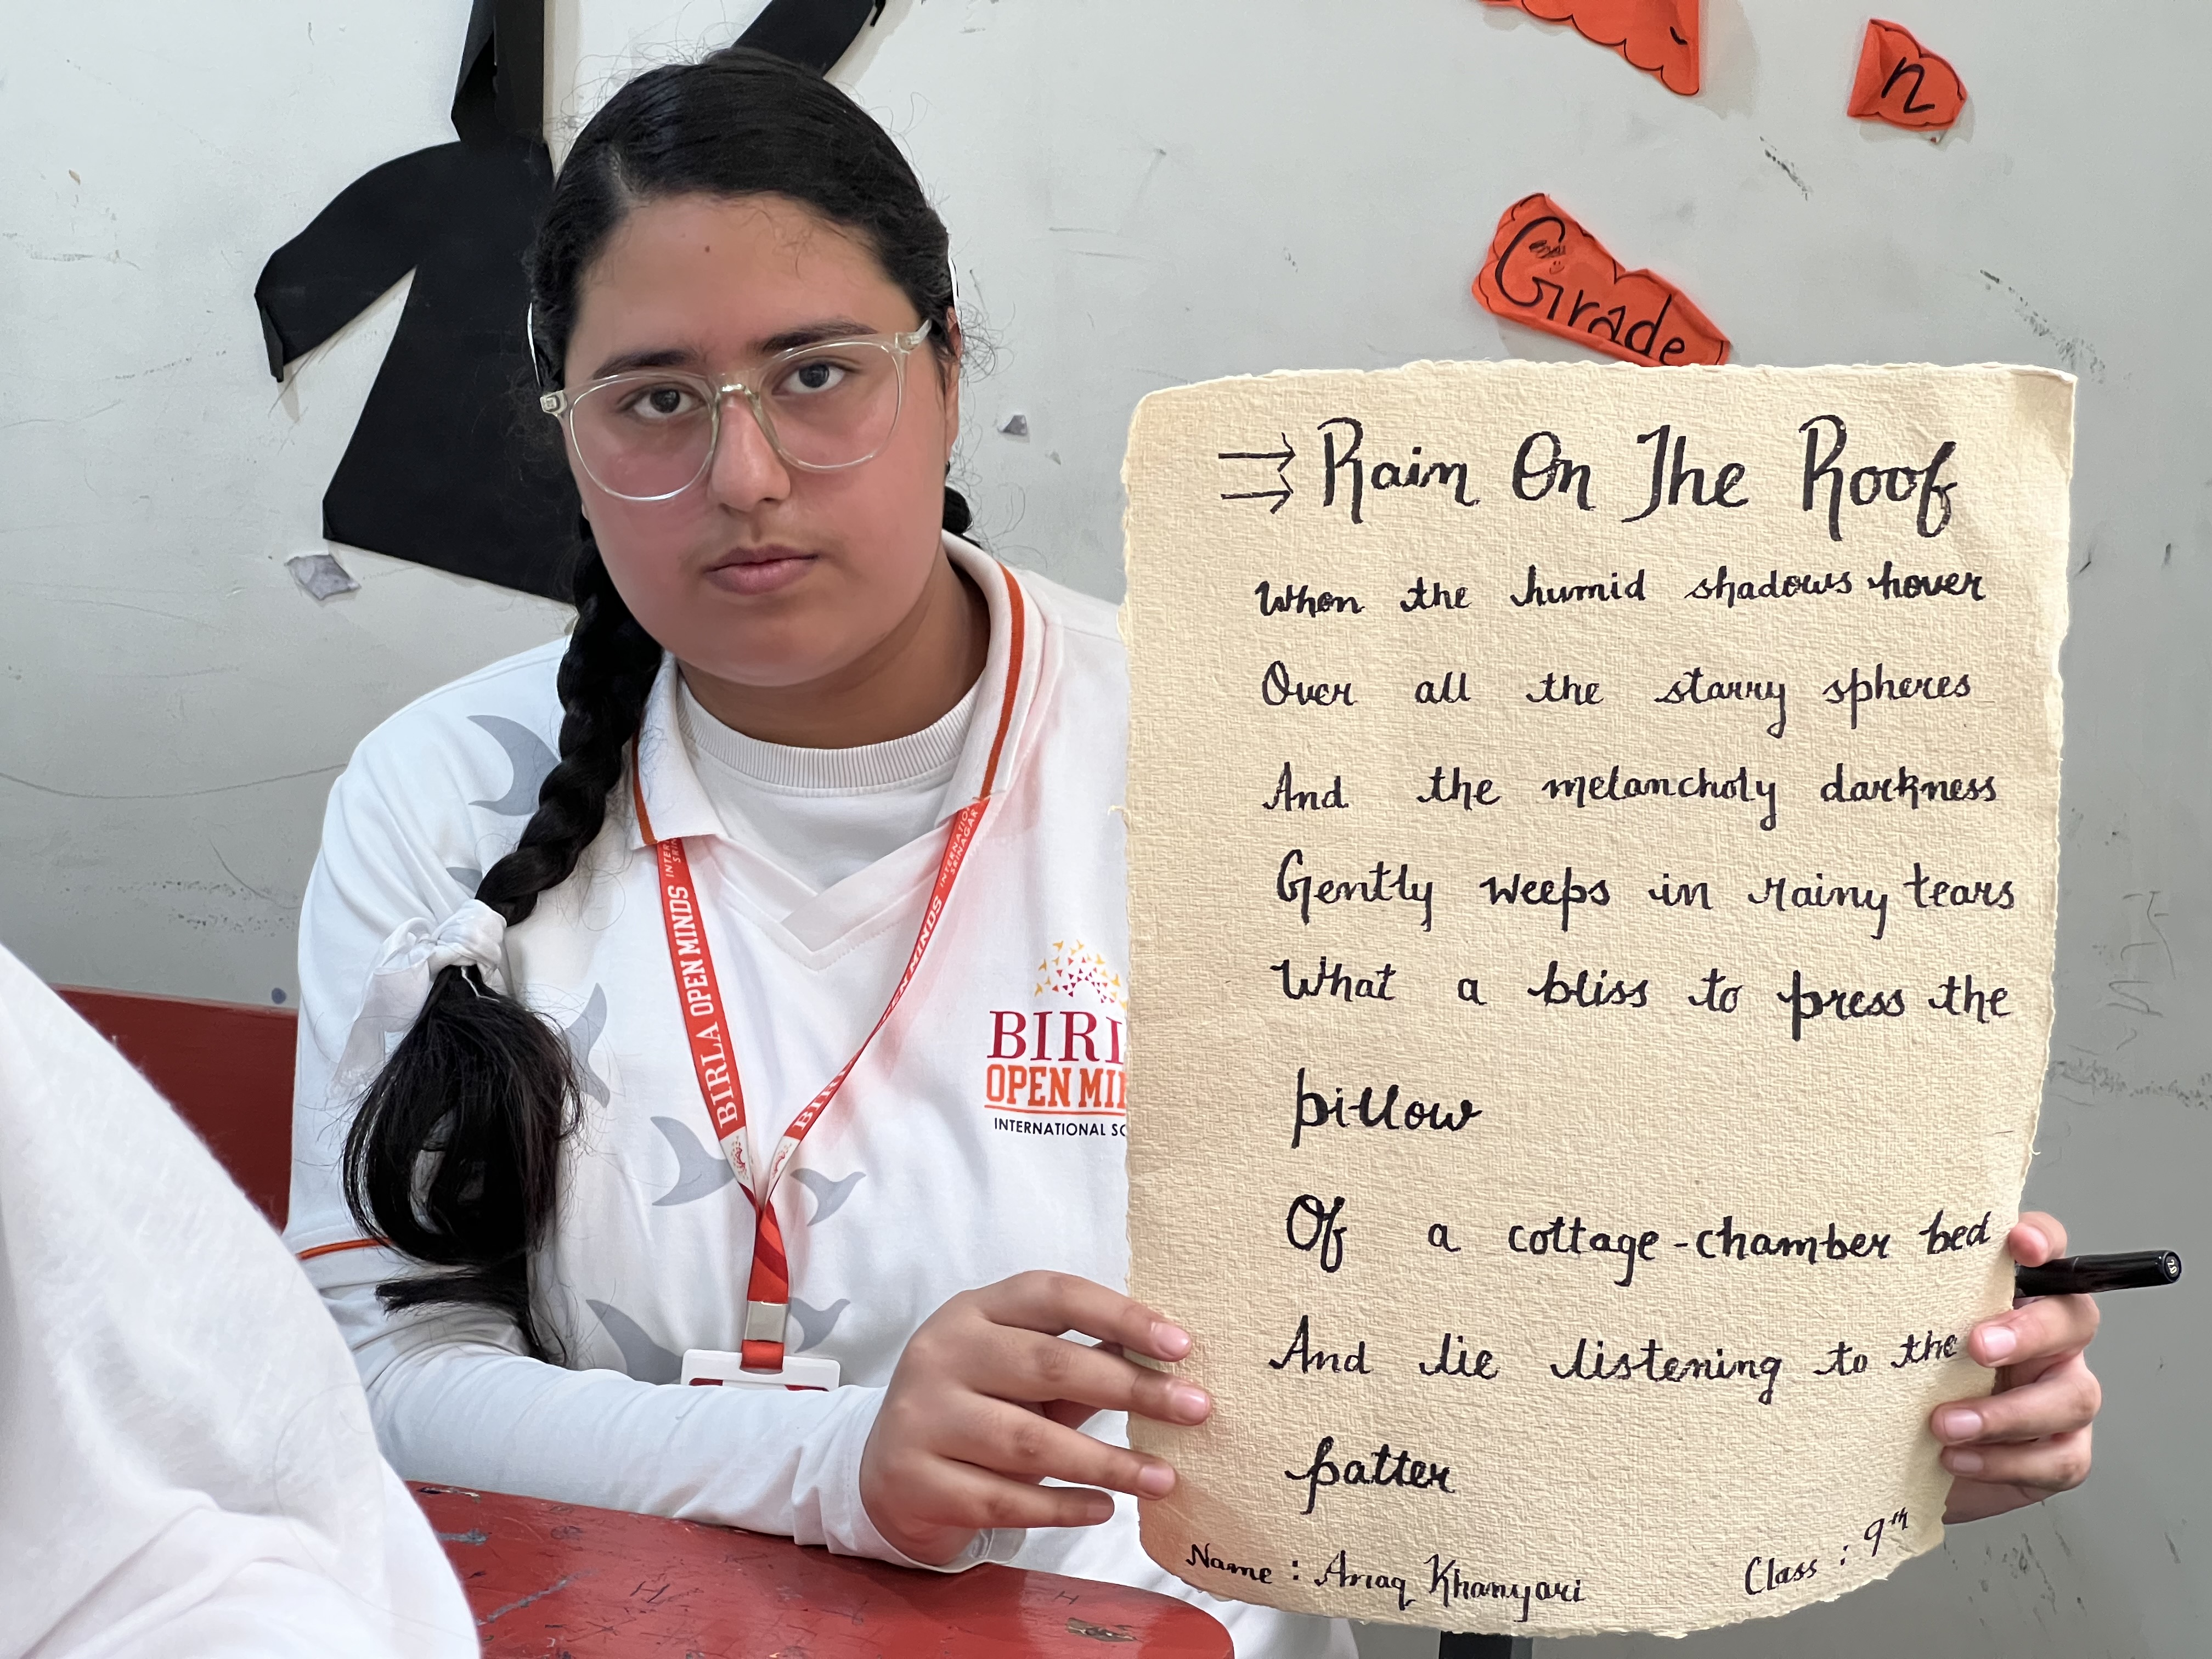 n
Grade
Rain On The Roof
When the humid shadows hover
Over all the starry spheres
And the melancholy darkness
Gently weeps in rainy tears
What a bliss to press the
pillow
Of a cottage-chamber bed
And lie listening to the
patter
Name : Araaq Khanyari Class : 9th
BIRLA OPEN MINDS INTERNATIO
SRINAGAR
BIRL
OPEN MIN
INTERNATIONAL SC